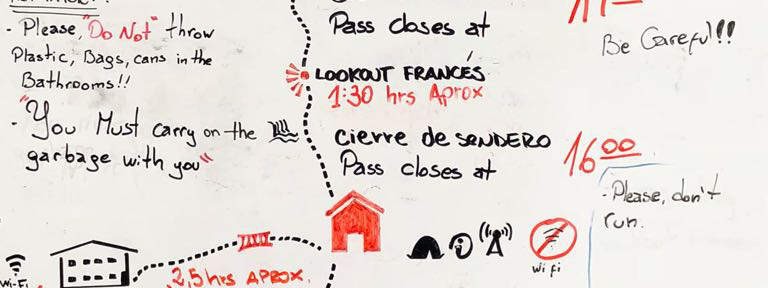 - Please, "Do Not" throw
Plastic, Bags, cans in the
Bathrooms!!
- "You Must carry on the
garbage with you"
Pass closes at
LOOKOUT FRANCÉS
1:30 hrs Aprox
cierre de SENDERO
Pass closes at
16:00
Be Careful!!
- Please, don't
run.
Wi-Fi
2,5 hrs APROX.
i
wifi